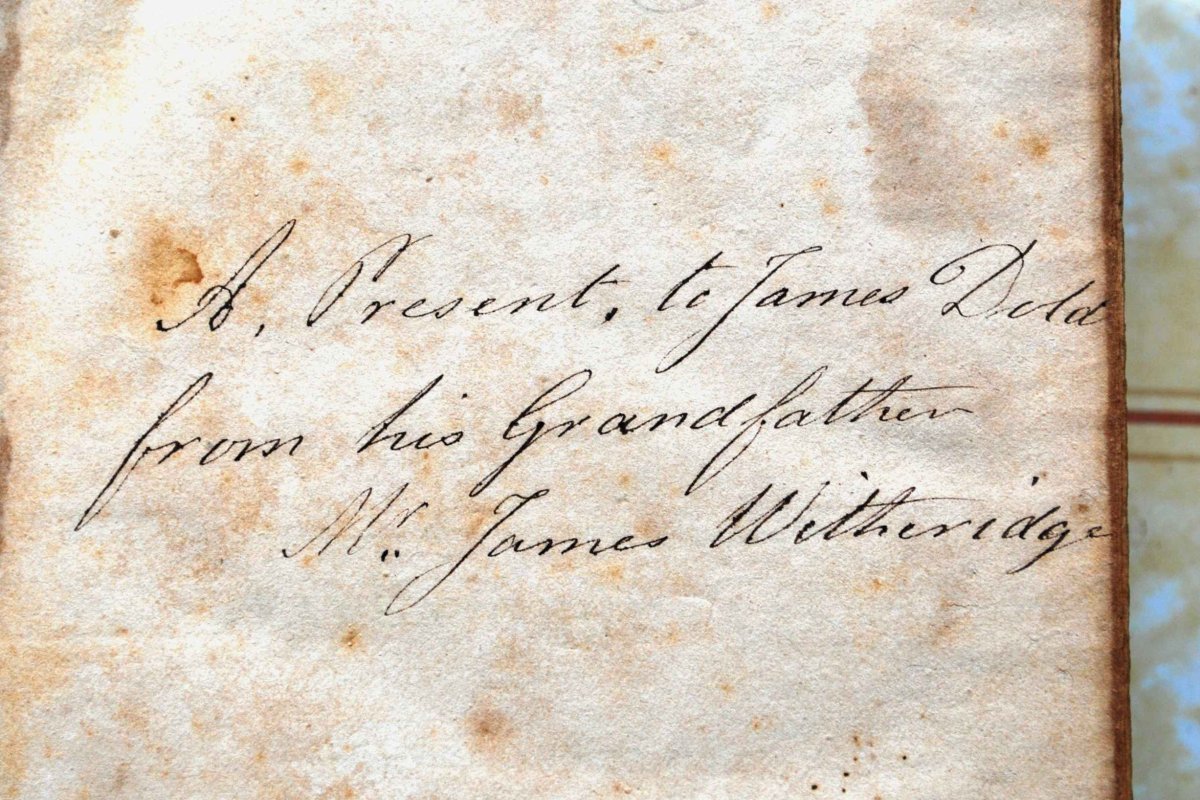 A, Present, to James Dold
from his Grandfather
Mr. James Witheridge